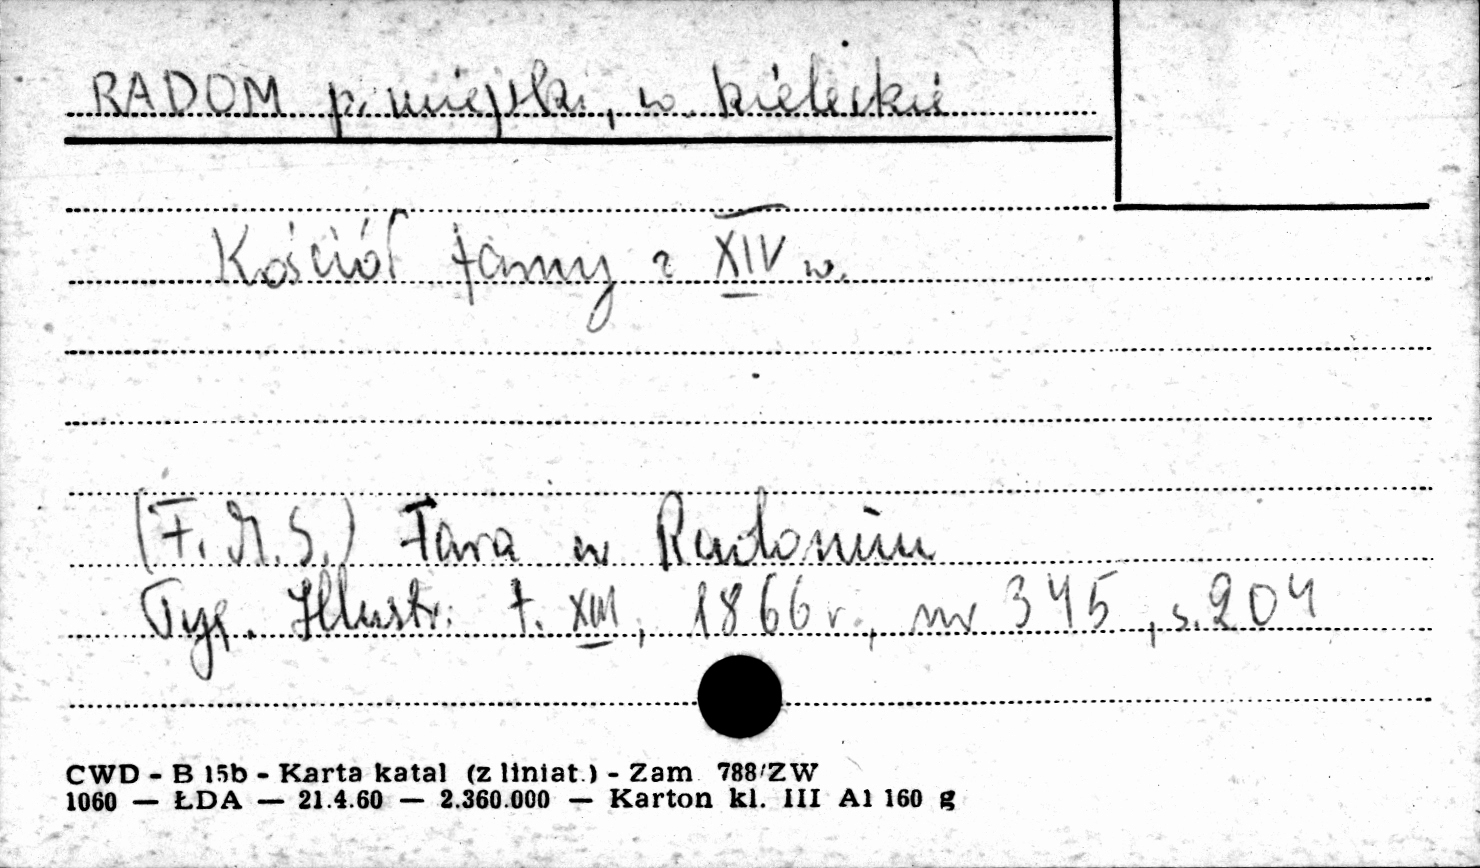 RADOM p. miejski, w. kieleckie
Kościół farny z XIV w.
(F. M. S.) Fara w Radomiu
Tyg. Illustr. t. XIII, 1866 r., nr 345, s. 204
CWD - B 15b - Karta katal (z liniat.) - Zam 788/ZW
1060 — ŁDA — 21.4.60 — 2.360.000 — Karton kl. III A1 160 g